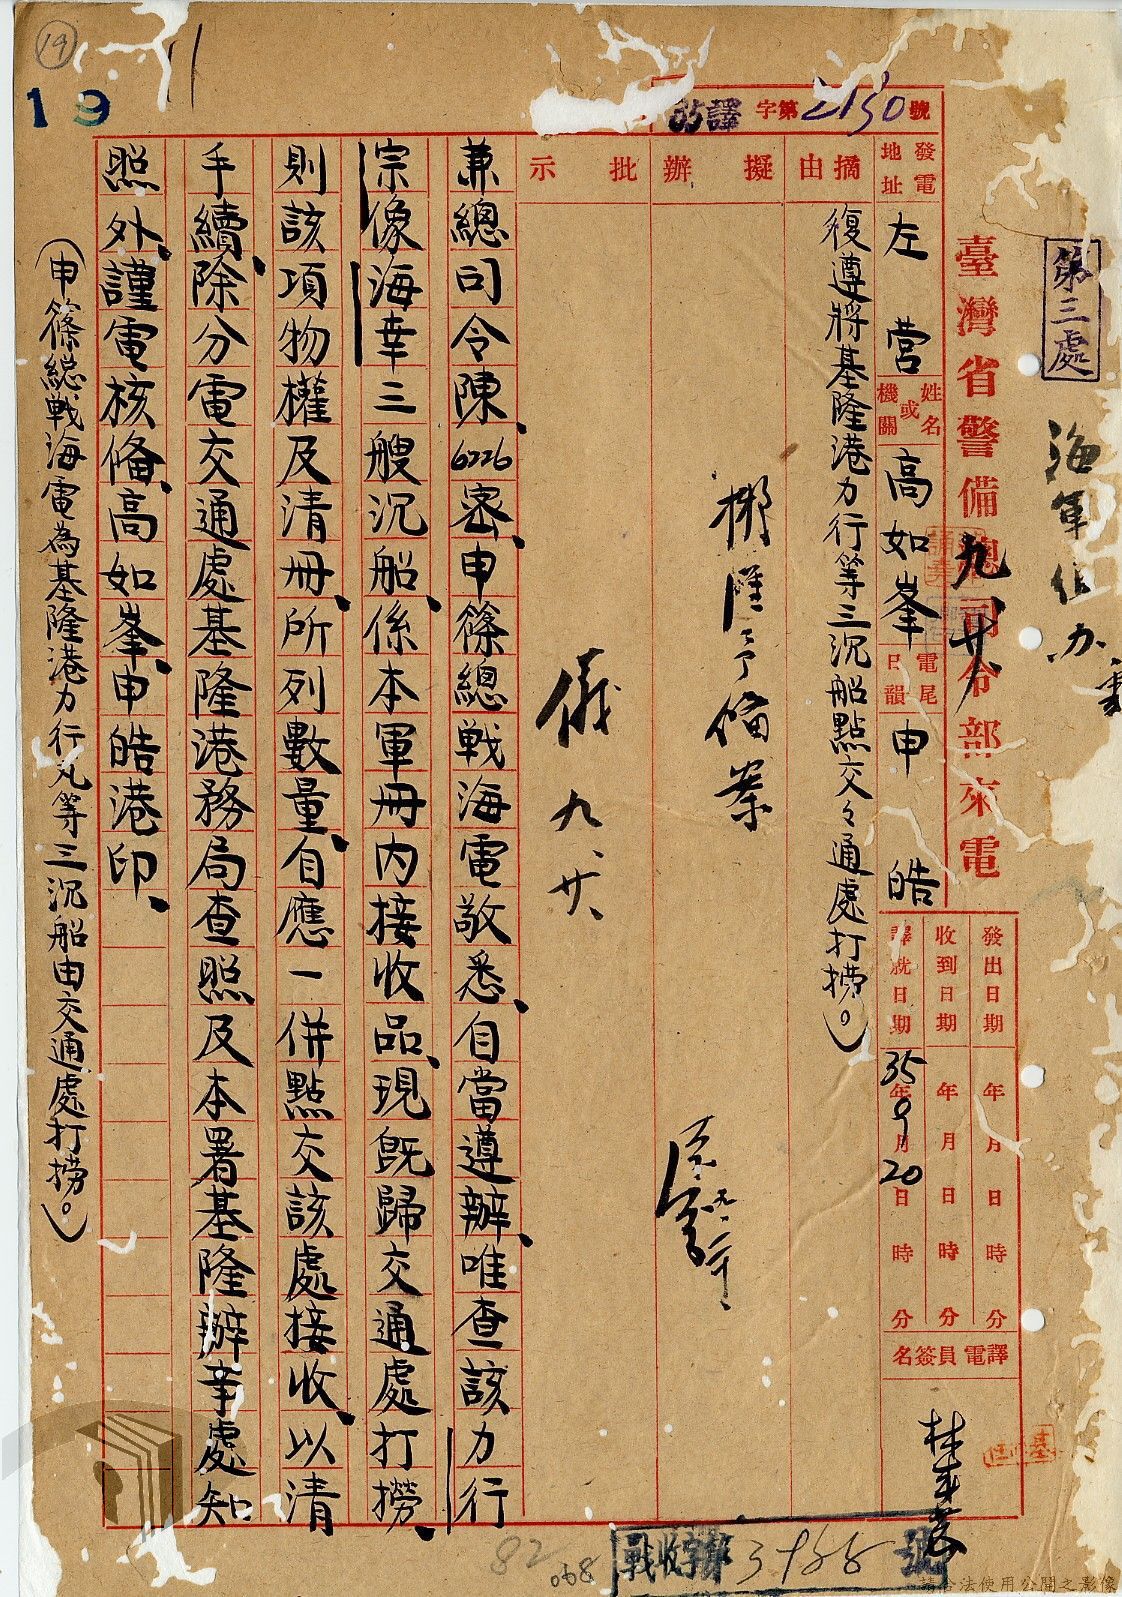 第三處
海軍組办
臺灣省警備總司令部來電
九、廿、
35譯字第2130號
發電地址 左營
姓名或機關 高如峯
電尾日韻 申皓
發出日期 年 月 日 時 分
收到日期 年 月 日 時 分
譯就日期 35年9月20日 時 分
譯電員簽名
摘由
復遵將基隆港力行等三沉船點交交通處打撈。
擬辦
備案
批示
九、廿、
兼總司令陳、6226密、申篠總戰海電敬悉、自當遵辦、唯查該力行
宗像海幸三艘沉船、係本軍冊內接收品、現既歸交通處打撈、
則該項物權及清冊、所列數量、自應一併點交該處接收、以清
手續、除分電交通處基隆港務局查照及本署基隆辦事處知
照外、謹電核備、高如峯、申皓港印、
(申篠總戰海電為基隆港力行丸等三沉船由交通處打撈。)
19
19
戰收字第3988號
82
068
請合法使用公開之影像